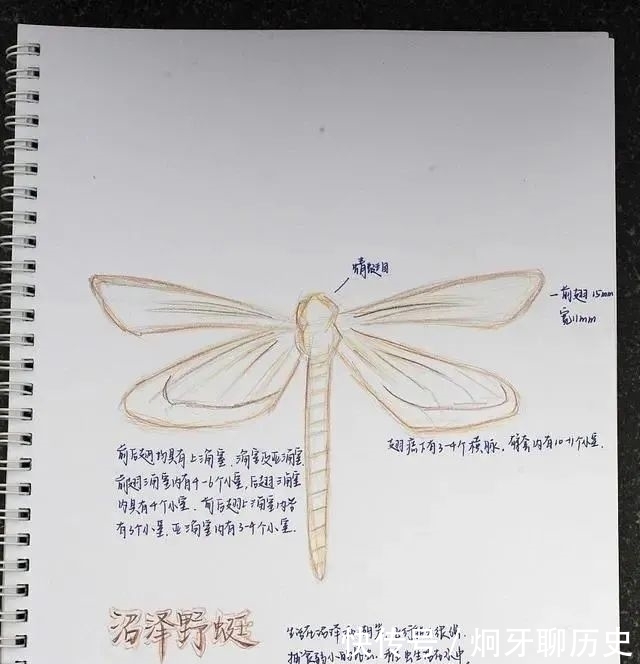 蜻蜓目
前翅 15mm
宽11mm
翅痣下有3-4个横脉，臀套内有10-11个小室.
前后翅均具有上三角室、三角室及亚三角室
前翅三角室内有4-6个小室，后翅三角室
内具有4个小室. 前后翅上三角室内各
有3个小室，亚三角室内有3-4个小室.
沼泽野蜓
生活在沼泽
捕食弱小的
快传号 / 炯牙聊历史